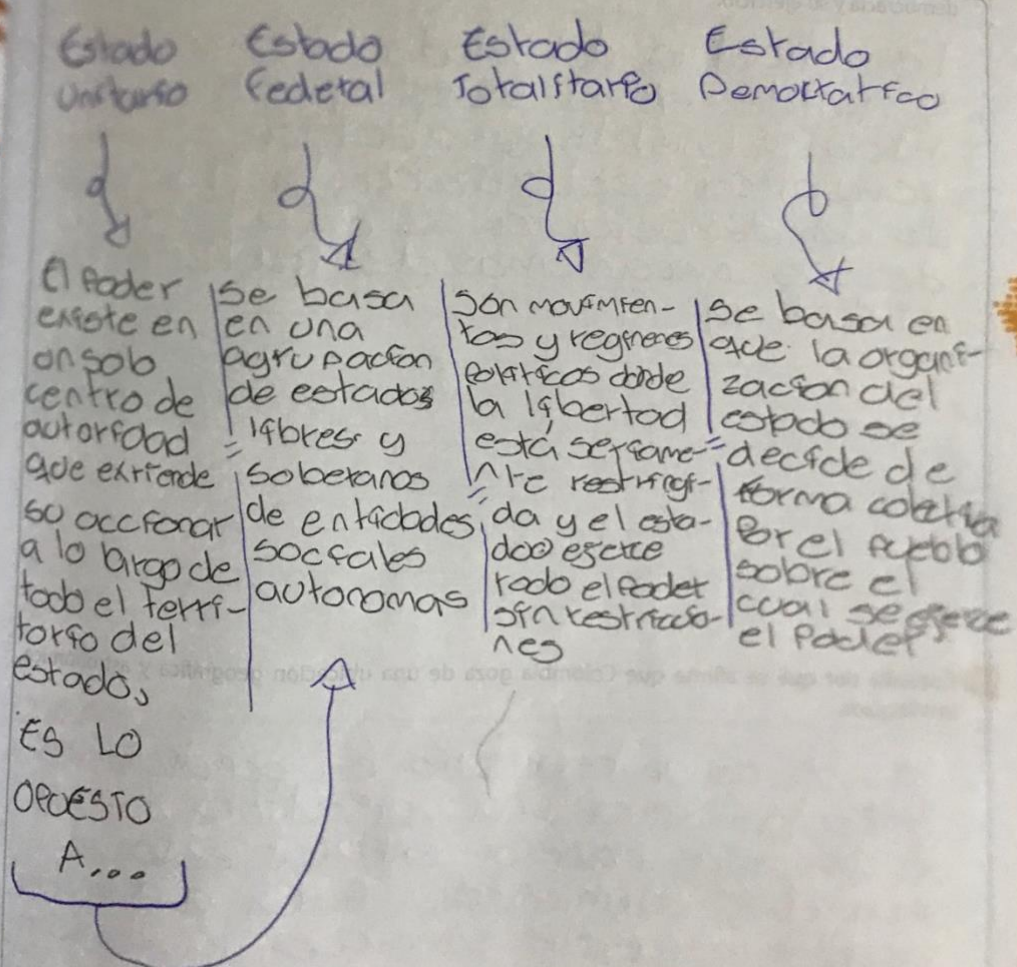 Estado
Unitario
El Poder
existe en
un solo
centro de
autoridad
que extiende
su accionar
a lo largo de
todo el terri-
torio del
estado,
ES LO
OPUESTO
A...
Estado
Federal
Se basa
en una
agrupación
de estados
libres y
soberanos
de entidades
sociales
autonomas
Estado
Totalitario
Son movimien-
tos y regimenes
Politicos dode
la libertad
está seriame-
nte restringi-
da y el esta-
doo ejerce
todo el Poder
sin restriccio-
nes
Estado
Democratico
Se basa en
que la organi-
zacion del
estado se
decide de
forma coletiva
Por el Pueblo
sobre el
cual se ejerce
el Poder